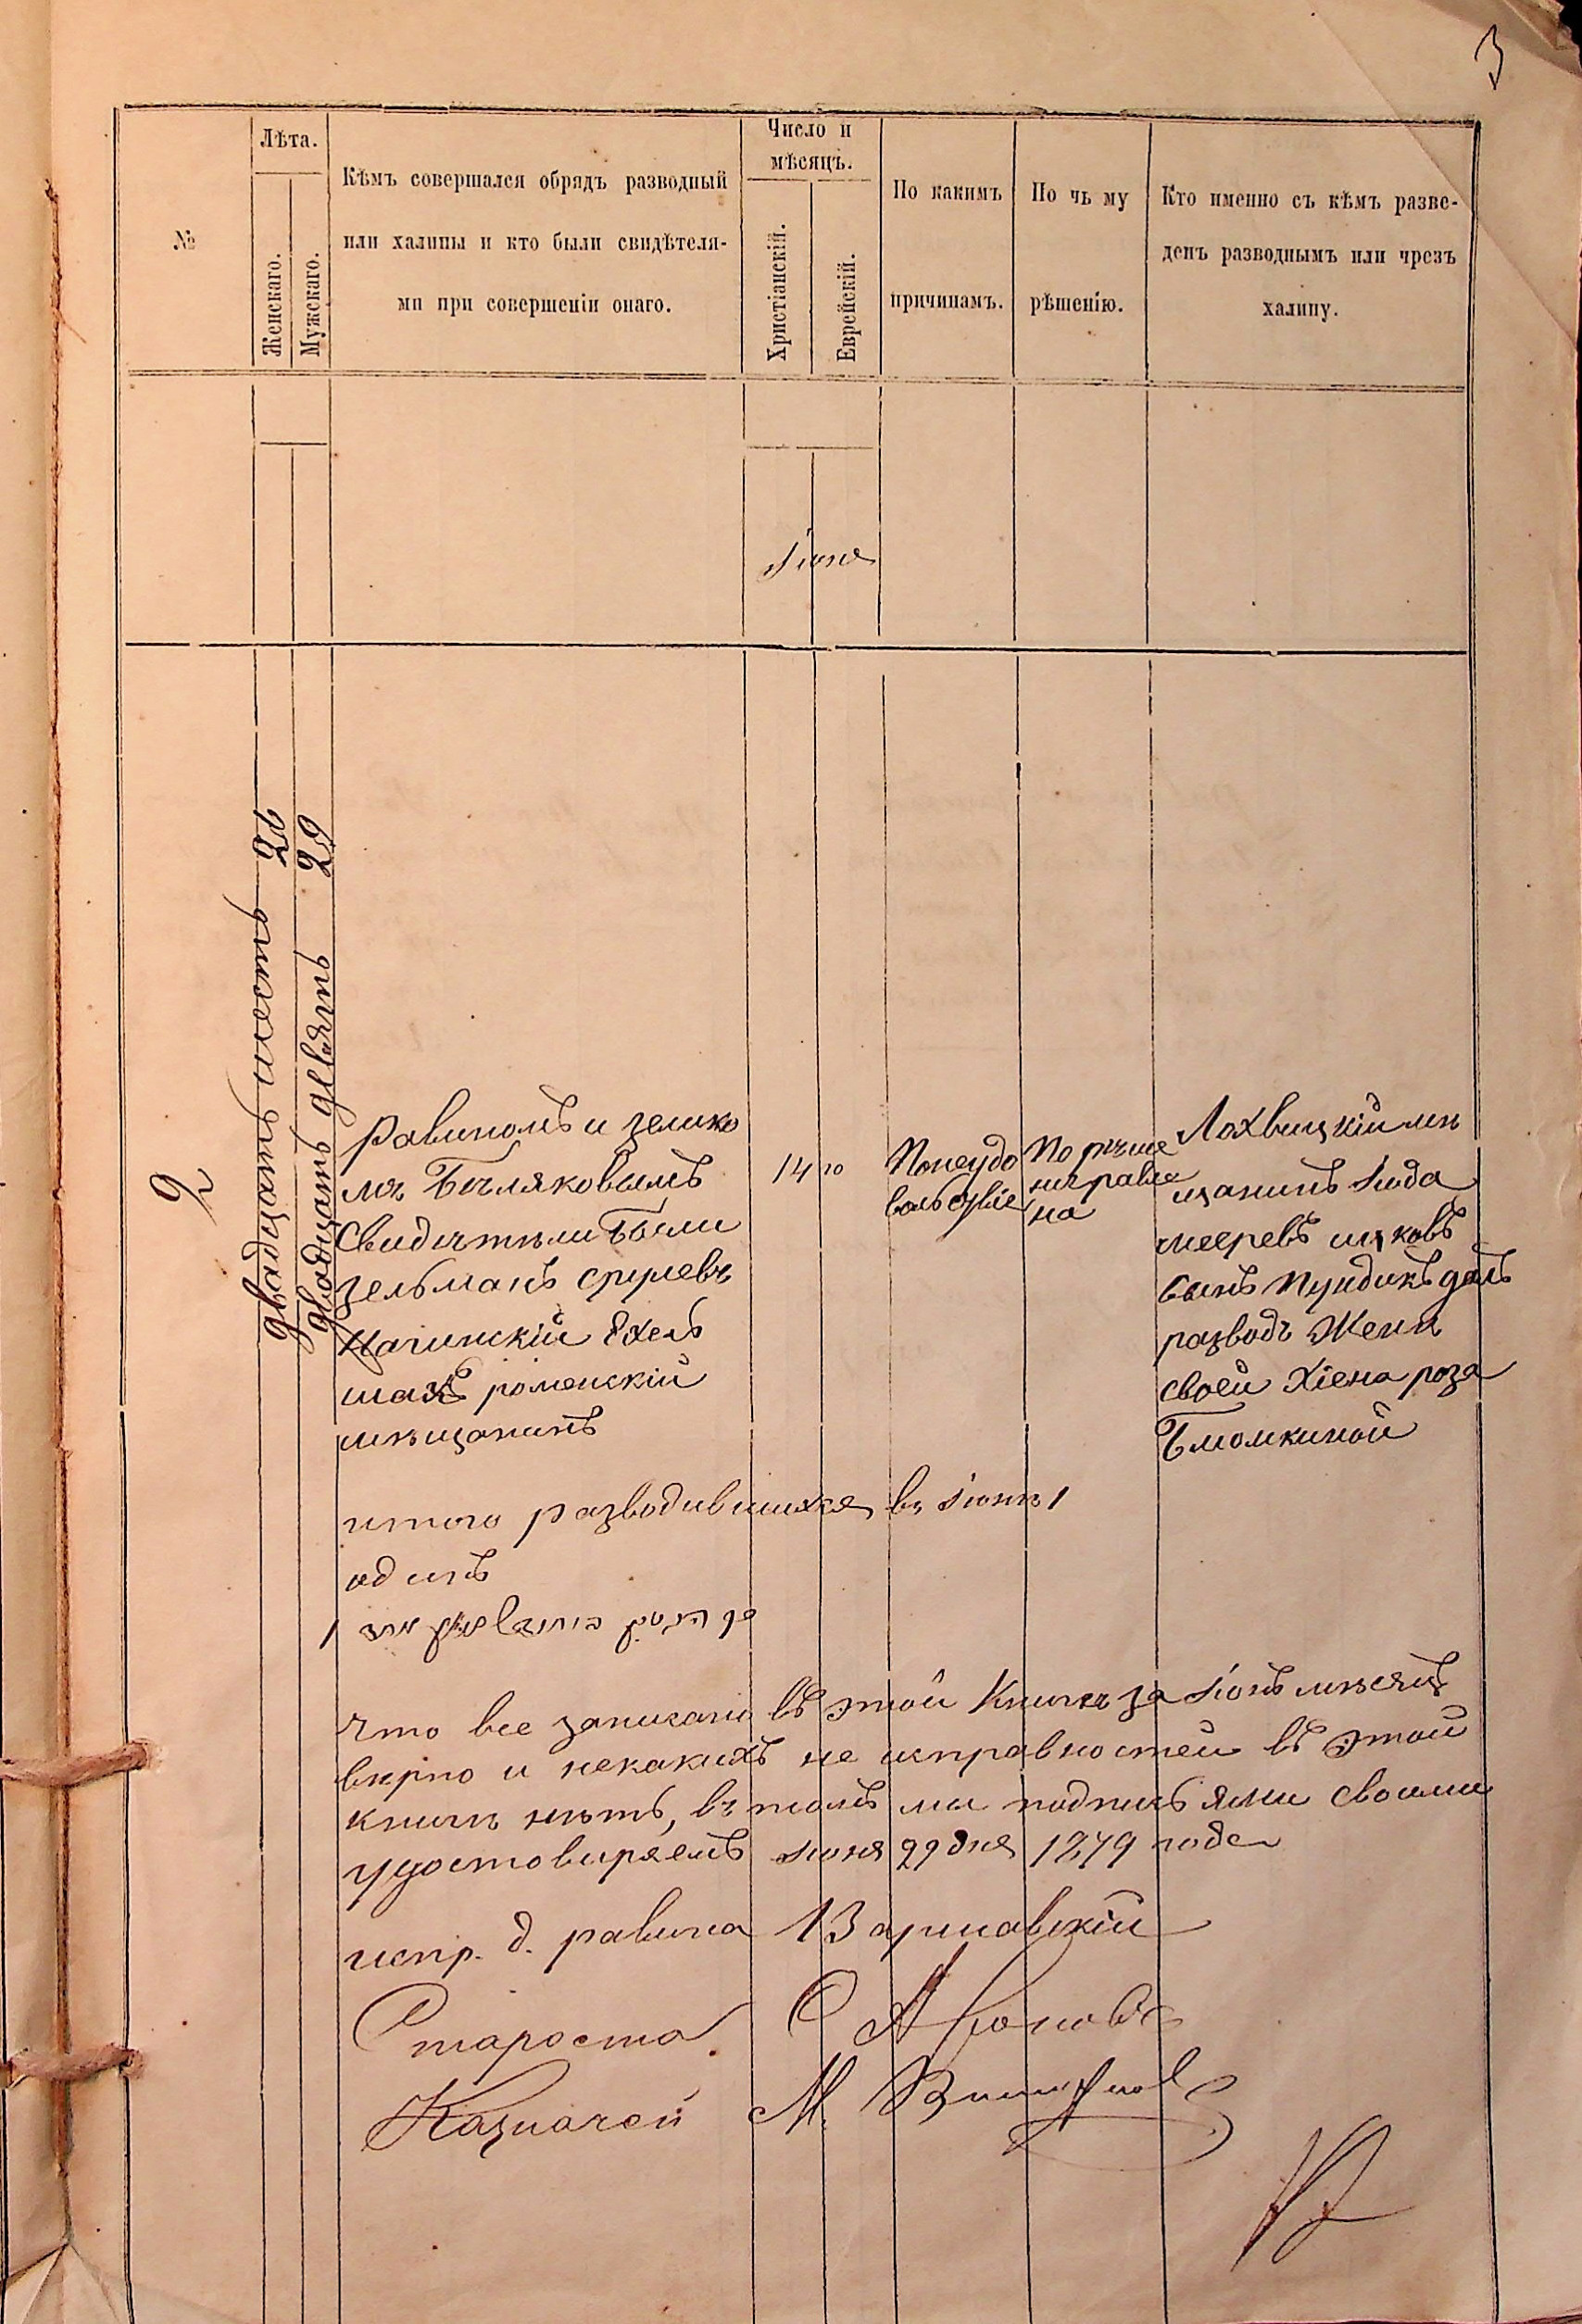 3
№
Лѣта.
Женскаго.
Мужскаго.
Кѣмъ совершался обрядъ разводный
или халицы и кто были свидѣтеля-
ми при совершеніи онаго.
Число и
мѣсяцъ.
Христіанскій.
Еврейскій.
По какимъ
причинамъ.
По чь му
рѣшенію.
Кто именно съ кѣмъ разве-
денъ разводнымъ или чрезъ
халицу.
Іюня
2
двадцать шесть 26
двадцать девять 29
равиномъ и зелико
мъ Беляковымъ
Свидетели были
зельманъ
роменскій
мѣщанинъ
14
Понеудо
вольствіе
По реше
ние равви
на
Лохвицкій мѣ
щанинъ Іюда
мееревъ ицковъ
сынъ Пундикъ далъ
разводъ Жени
своей Хіена роза
Блюмкиной
итого разводившихся въ Іюнѣ 1
одинъ
что все записано въ этой Книге за Іюнь мѣсяцъ
верно и некакихъ не исправностей въ этой
книги нетъ, въ томъ мы подписями своими
удостовиряемъ Іюня 29 дня 1879 года
испр. д. равина
Староста
Казначей М.